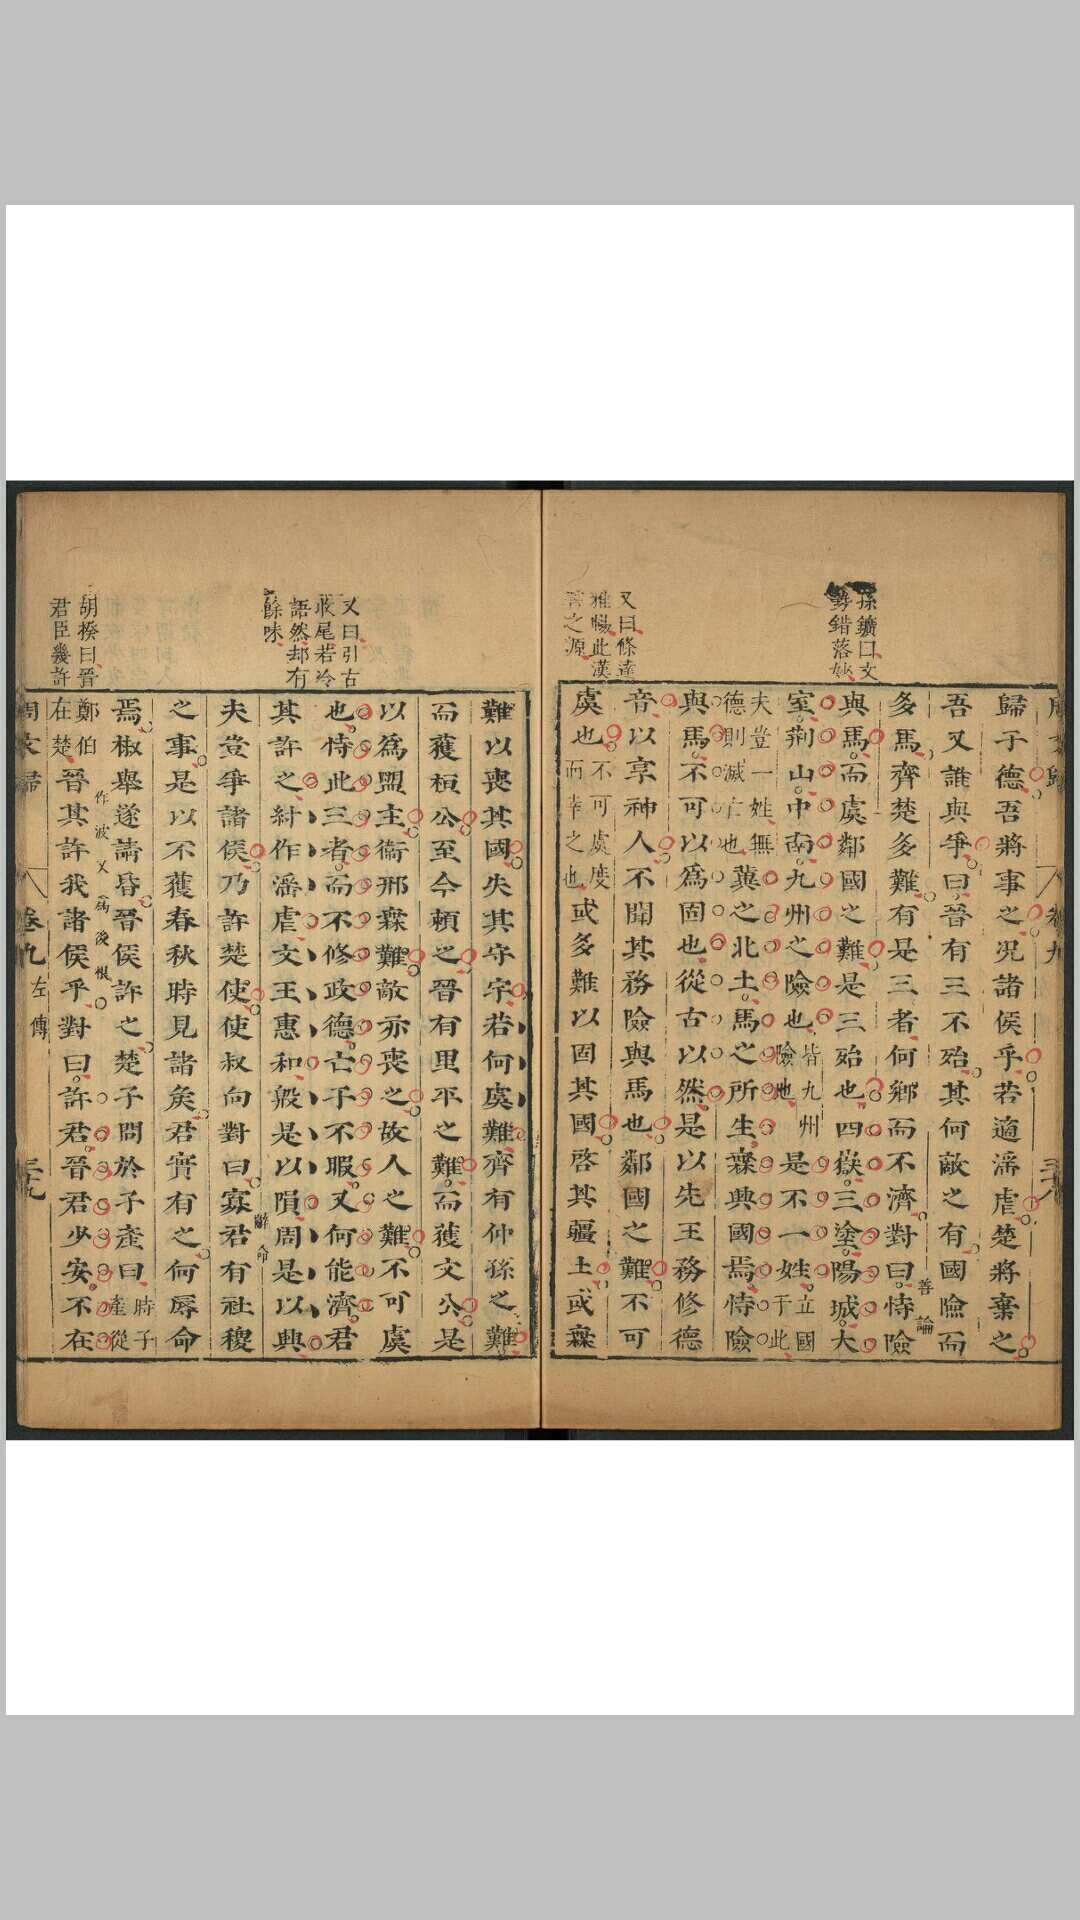 周文歸
卷九
三十八
歸于德吾將事之况諸侯乎若適淫虐楚將棄之
吾又誰與爭曰晉有三不殆其何敵之有國險而
多馬齊楚多難有是三者何鄉而不濟對曰恃險
善論
與馬而虞鄰國之難是三殆也四嶽三塗陽城大
室荊山中南九州之險也
皆九州
險也
是不一姓
立國
于此
夫豈一姓無
德則滅亡也
冀之北土馬之所生無興國焉恃險
與馬不可以為固也從古以然是以先王務修德
音以享神人不聞其務險與馬也鄰國之難不可
虞也
不可虞度
而幸之也
或多難以固其國啓其疆土或無
孫鑛曰文
勢錯落妙
又曰條達
雅暢此漢
難以喪其國失其守宇若何虞難齊有仲孫之難
而獲桓公至今賴之晉有里平之難而獲文公是
以為盟主衛邢無難敵亦喪之故人之難不可虞
也恃此三者而不修政德亡于不暇又何能濟君
其許之紂作淫虐文王惠和殷是以隕周是以興
夫豈爭諸侯乃許楚使使叔向對曰寡君有社稷
辭命
之事是以不獲春秋時見諸矦君實有之何辱命
焉椒舉遂請昏晉侯許之楚子問於子產曰
時子
產從
鄭伯
在楚
晉其許我諸侯乎對曰許君晉君少安不在
又曰引古
收尾若冷
語然却有
餘味
胡揆曰晉
君臣幾許
周文歸
卷九
左傳
三十九